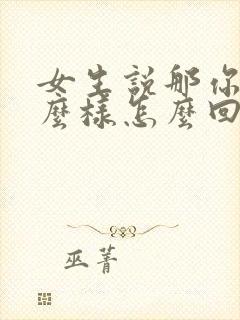 女生説那你
麼樣怎麼回
巫菁